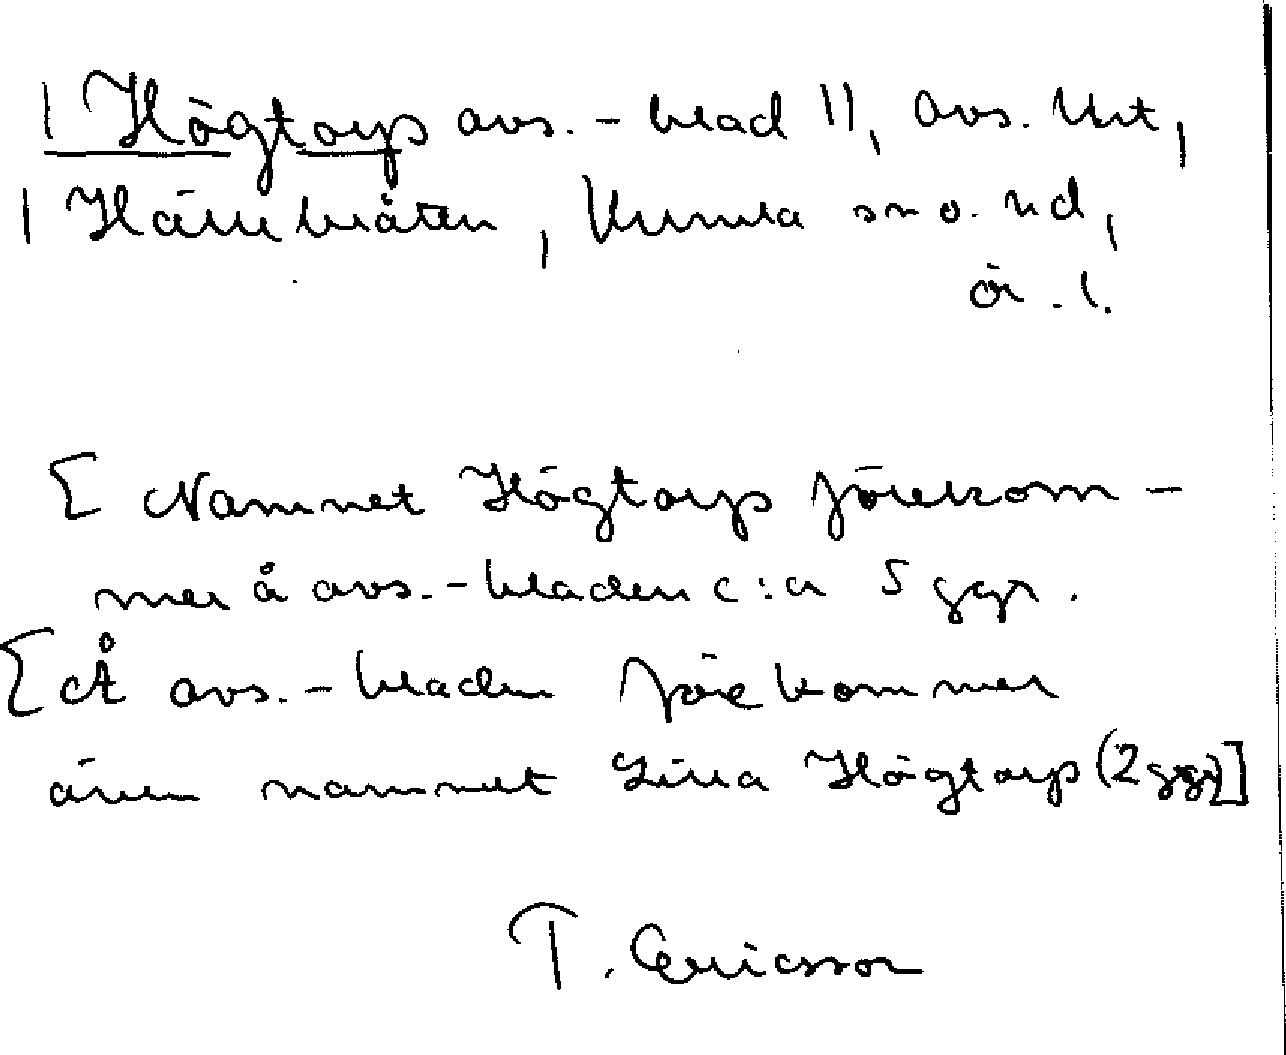 | Högtorp avs.-blad 11, avs. utt,
| Hällebråten, Kumla sn o. hd,
ör. l.
[ Namnet Högtorp förekom-
mer å avs.-bladen c:a 5 ggr.
[ Å avs.-bladen förekommer
även namnet Lilla Högtorp (2 ggr)]
T. Ericsson